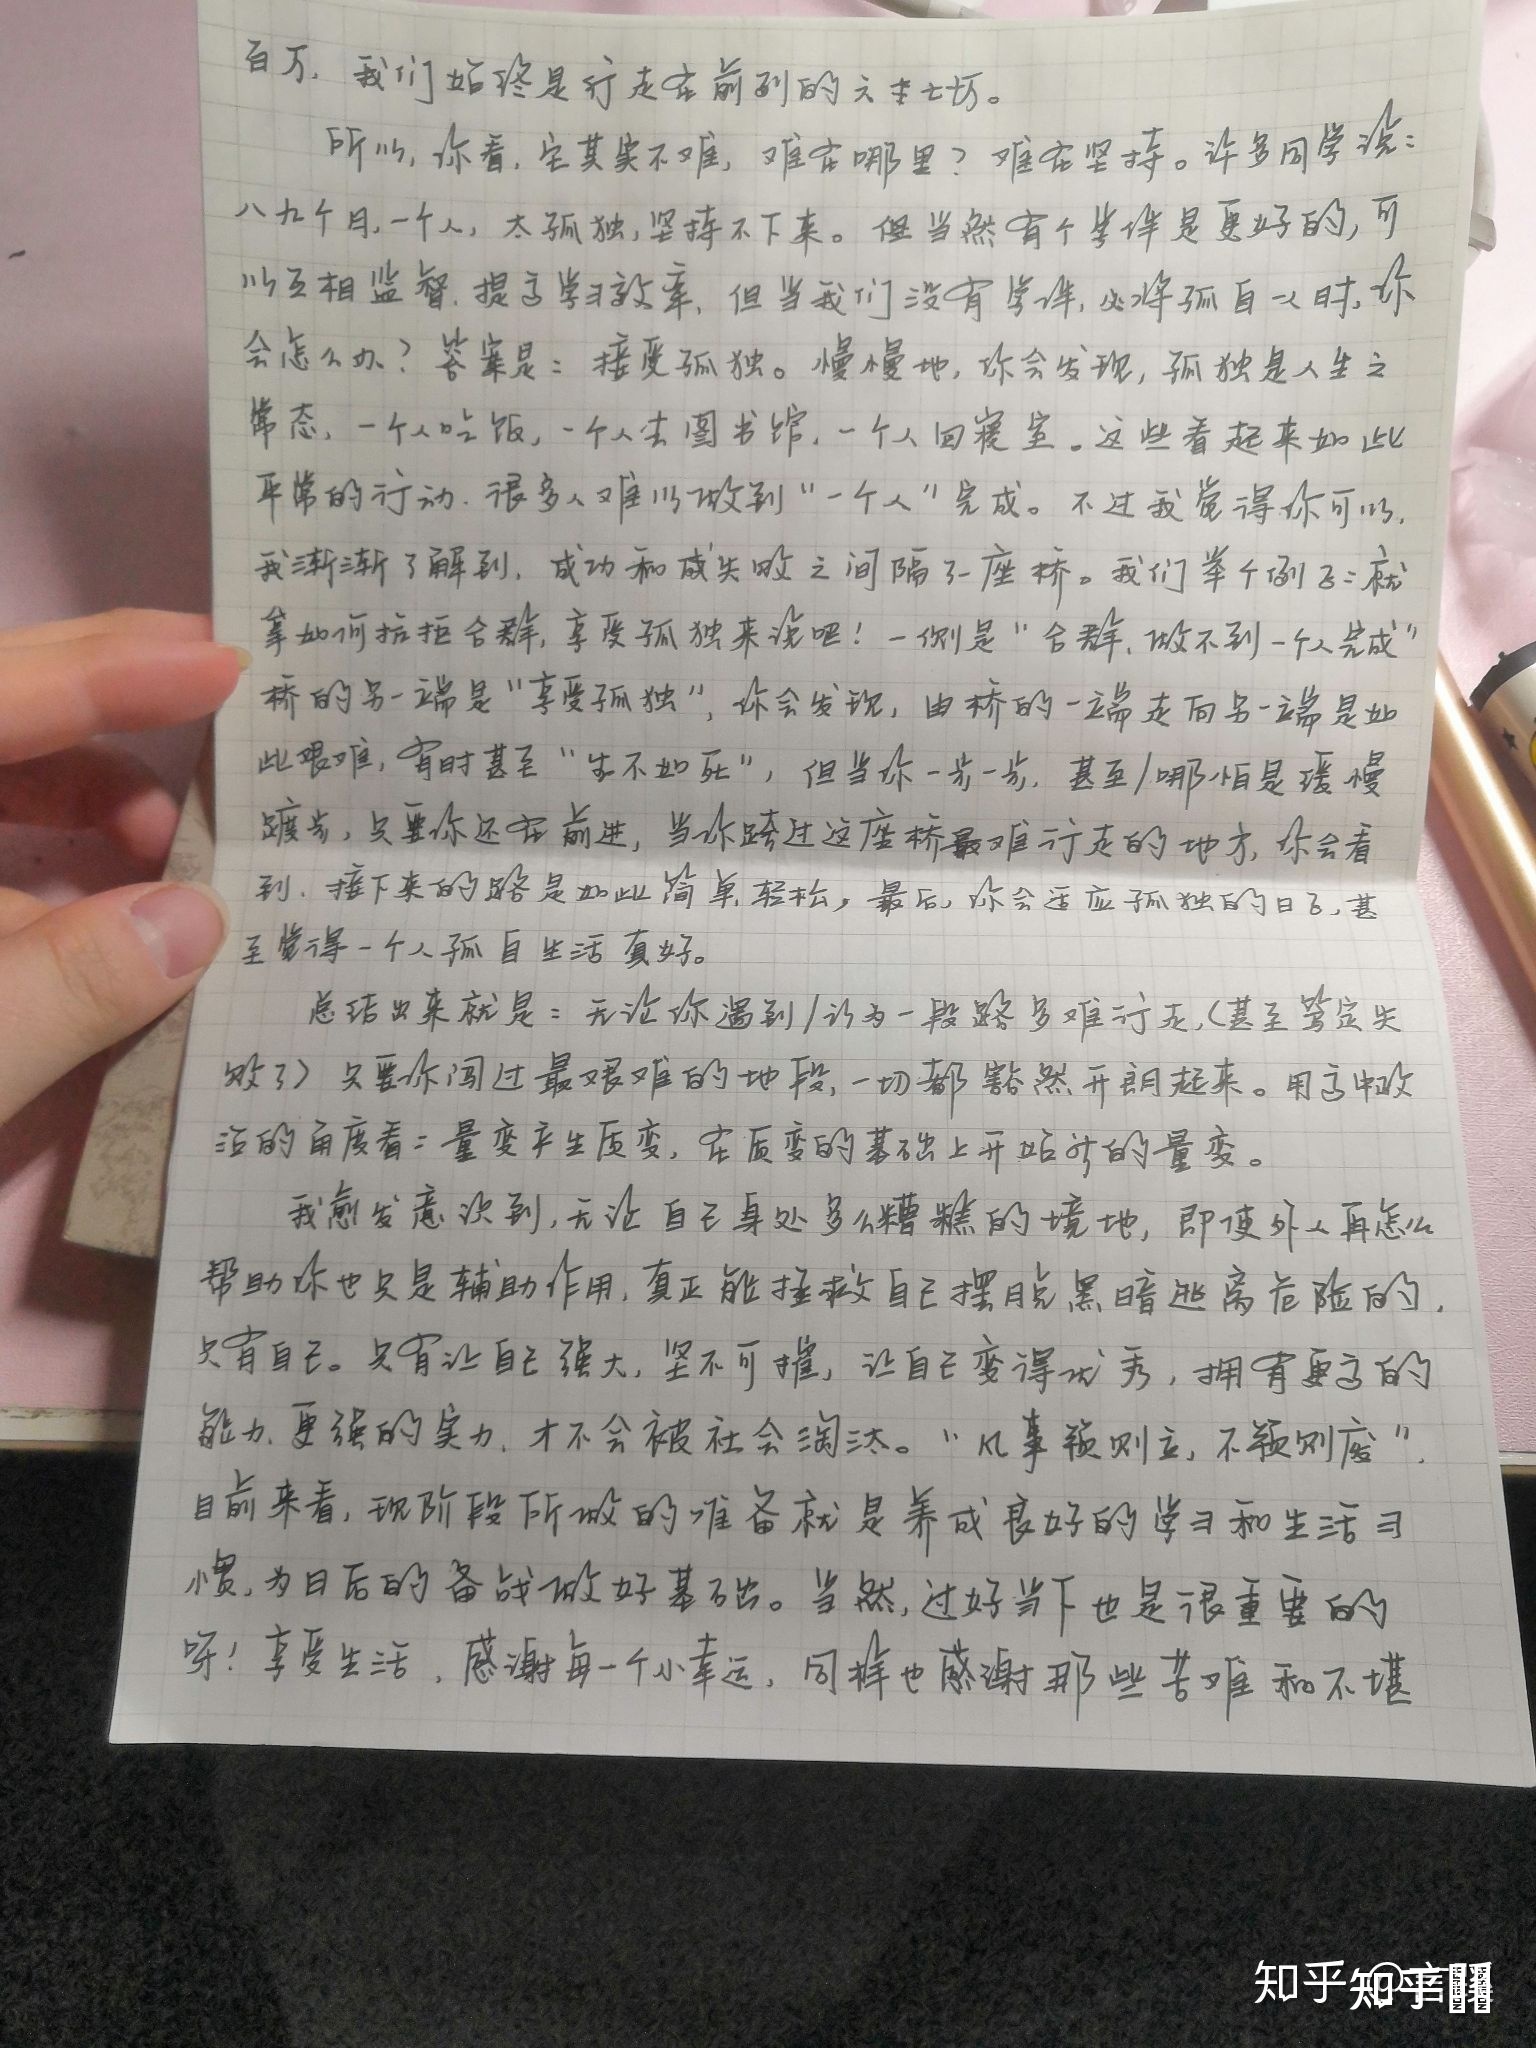 百万，我们始终是行走在前列的六本七坊。
所以，你看，它其实不难，难在哪里？难在坚持。许多同学说：
八九个月，一个人，太孤独，坚持不下来。但当然有个学伴是更好的，可
以互相监督，提高学习效率，但当我们没有学伴，必将孤自一人时，你
会怎么办？答案是：接受孤独。慢慢地，你会发现，孤独是人生之
常态，一个人吃饭，一个人去图书馆，一个人回寝室。这些看起来如此
平常的行动，很多人难以做到“一个人”完成。不过我觉得你可以，
我渐渐了解到，成功和失败之间隔了一座桥。我们举个例子：就
拿如何抗拒合群，享受孤独来说吧！一侧是“合群，做不到一个人完成”
桥的另一端是“享受孤独”，你会发现，由桥的一端走向另一端是如
此艰难，有时甚至“生不如死”，但当你一步一步，甚至/哪怕是缓慢
踱步，只要你还在前进，当你跨过这座桥最难行走的地方，你会看
到，接下来的路是如此简单，轻松，最后，你会适应孤独的日子，甚
至觉得一个人孤自生活真好。
总结出来就是：无论你遇到/认为一段路多难行走，（甚至笃定失
败了）只要你闯过最艰难的地段，一切都豁然开朗起来。用高中政
治的角度看：量变产生质变，在质变的基础上开始新的量变。
我愈发意识到，无论自己身处多么糟糕的境地，即使外人再怎么
帮助你也只是辅助作用，真正能拯救自己摆脱黑暗逃离危险的，
只有自己。只有让自己强大，坚不可摧，让自己变得优秀，拥有更高的
能力，更强的实力，才不会被社会淘汰。“凡事预则立，不预则废”，
目前来看，现阶段所做的准备就是养成良好的学习和生活习
惯，为日后的备战做好基础。当然，过好当下也是很重要的
呀！享受生活，感谢每一个小幸运，同样也感谢那些苦难和不堪
知乎
知乎